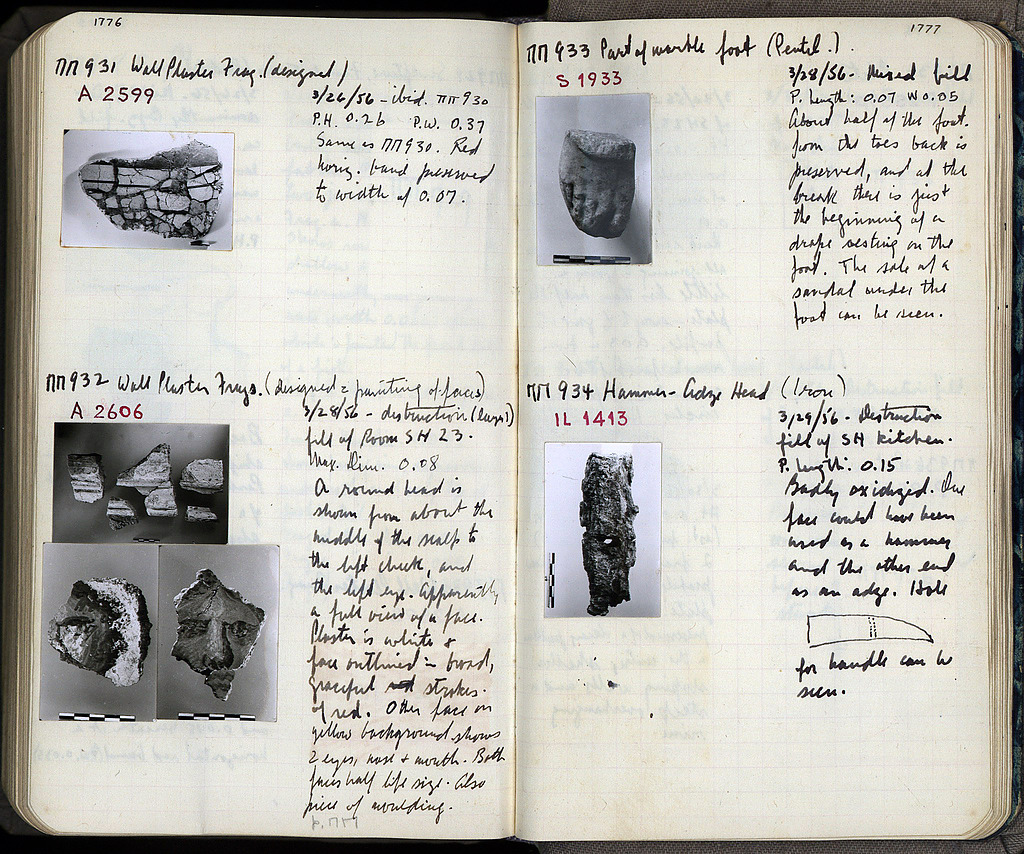 1776
ΠΠ 931 Wall Plaster Frag. (designed)
A 2599
3/26/56 - ibid. ΠΠ 930
P.H. 0.26 P.W. 0.37
Same as ΠΠ 930. Red
horiz. band preserved
to width of 0.07.
ΠΠ 932 Wall Plaster Frags. (designed = painting of faces)
A 2606
3/28/56 - destruction (layer)
fill of Room SH 23.
Max. Dim. 0.08
A round head is
shown from about the
middle of the scalp to
the left cheek, and
the left eye. Apparently
a full view of a face.
Plaster is white &
face outlined in broad,
graceful strokes
of red. Other face on
yellow background shows
2 eyes, nose & mouth. Both
faces half life size. Also
piece of moulding.
1777
ΠΠ 933 Part of marble foot (Pentel.).
S 1933
3/28/56 - Mixed fill
P. Length: 0.07 W 0.05
About half of the foot
from the toes back is
preserved, and at the
break there is just
the beginning of a
drape resting on the
foot. The sole of a
sandal under the
foot can be seen.
ΠΠ 934 Hammer-Adze Head (Iron)
IL 1413
3/29/56 - Destruction
fill of SH kitchen.
P. Length: 0.15
Badly oxidized. One
face could have been
used as a hammer
and the other end
as an adze. Hole
for handle can be
seen.